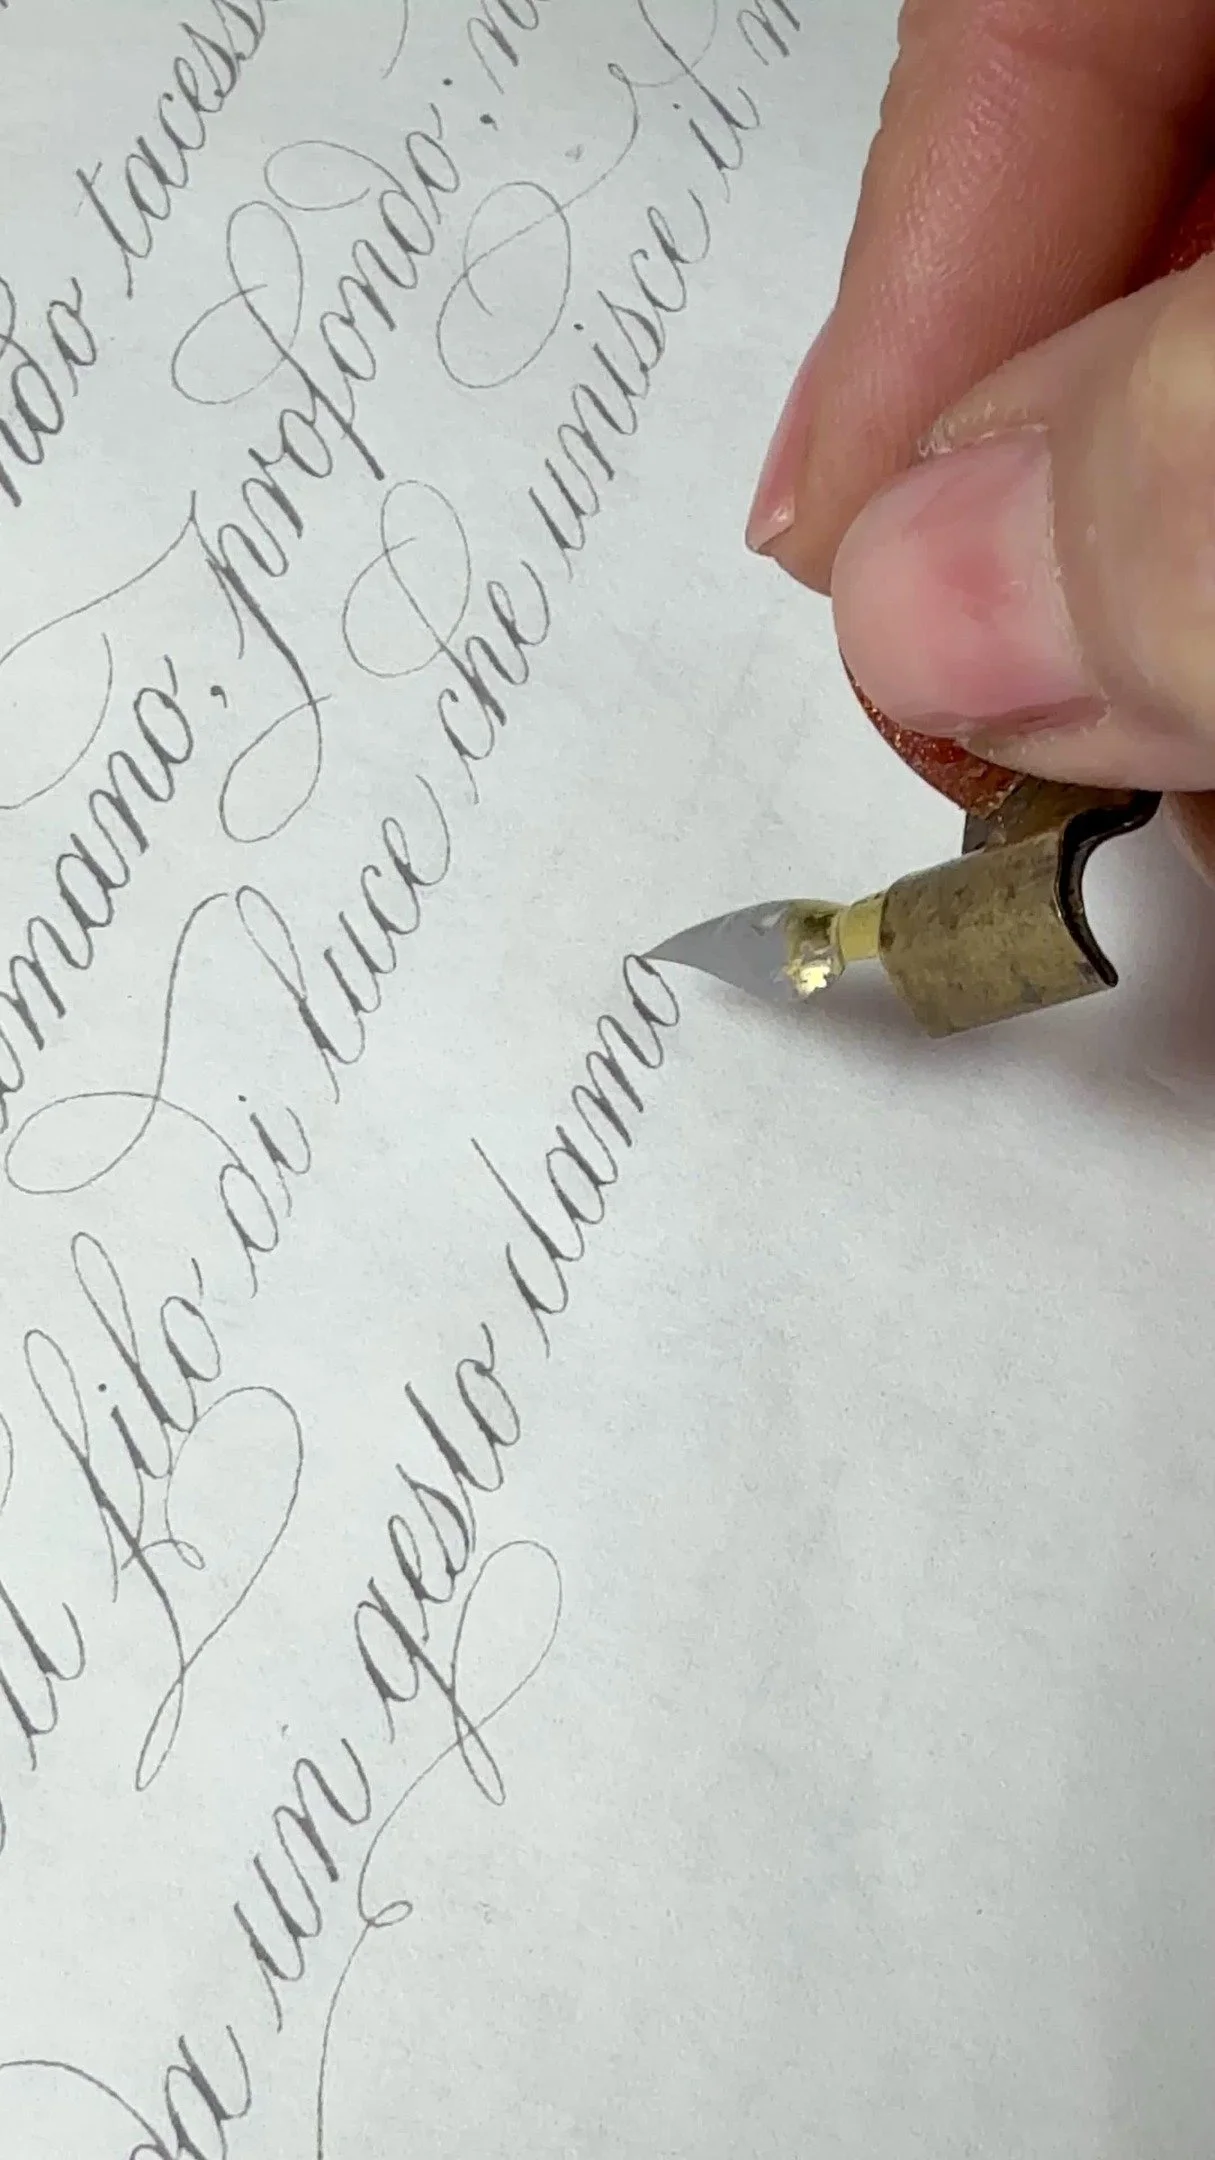 ndo tacess
umano, profondo; n
il filo di luce che unisce il m
da un gesto damo